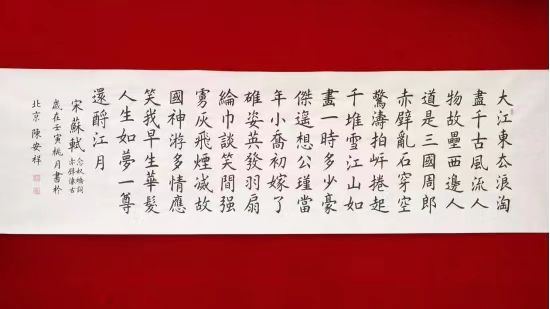 大江東去浪淘
盡千古風流人
物故壘西邊人
道是三國周郎
赤壁亂石穿空
驚濤拍岸捲起
千堆雪江山如
畫一時多少豪
傑遙想公瑾當
年小喬初嫁了
雄姿英發羽扇
綸巾談笑間强
虜灰飛煙滅故
國神游多情應
笑我早生華髮
人生如夢一尊
還酹江月
宋蘇軾
念奴嬌詞
赤壁懷古
歲在壬寅桃月書於
北京 陳安祥